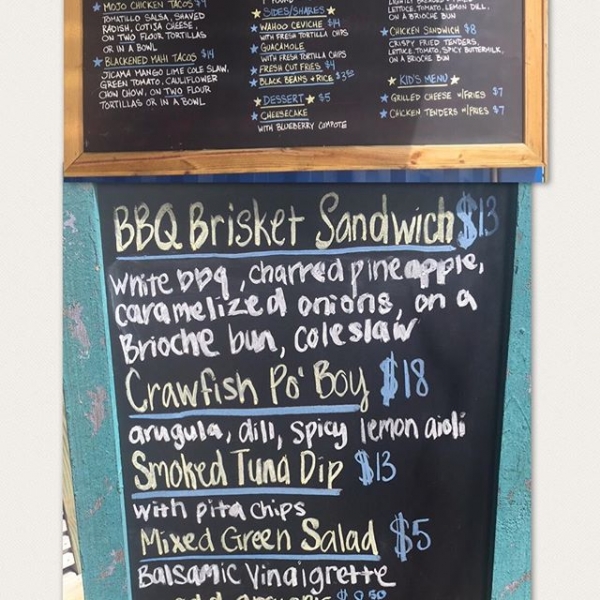 MOJO CHICKEN TACOS $9
TOMATILLO SALSA, SHAVED
RADISH, COTIJA CHEESE,
ON TWO FLOUR TORTILLAS
OR IN A BOWL
BLACKENED MAHI TACOS $14
JICAMA MANGO LIME COLE SLAW,
GREEN TOMATO, CAULIFLOWER
CHOW CHOW, ON TWO FLOUR
TORTILLAS OR IN A BOWL
SIDES/SHARES
WAHOO CEVICHE $14
WITH FRESH TORTILLA CHIPS
GUACAMOLE
WITH FRESH TORTILLA CHIPS
FRESH CUT FRIES $4
BLACK BEANS + RICE $3.50
DESSERT $5
CHEESECAKE
WITH BLUEBERRY COMPOTE
LETTUCE, TOMATO, LEMON DILL,
ON A BRIOCHE BUN
CHICKEN SANDWICH $8
CRISPY FRIED TENDERS,
LETTUCE, TOMATO, SPICY BUTTERMILK,
ON A BRIOCHE BUN
KID'S MENU
GRILLED CHEESE W/FRIES $7
CHICKEN TENDERS W/FRIES $7
BBQ Brisket Sandwich $13
white bbq, charred pineapple,
caramelized onions, on a
Brioche bun, coleslaw
Crawfish Po' Boy $18
arugula, dill, spicy lemon aioli
Smoked Tuna Dip $13
with pita chips
Mixed Green Salad $5
Balsamic Vinaigrette